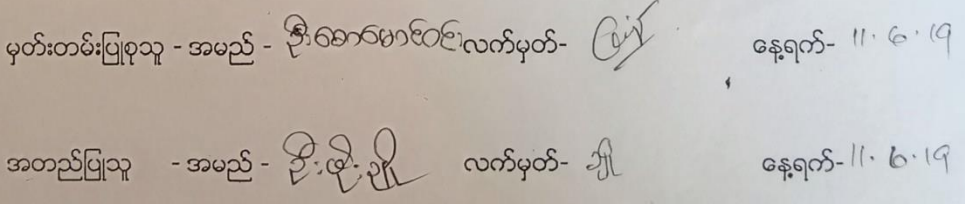 မှတ်းတမ်းပြုစုသူ - အမည် - ဦးဆောမောင်ဝင်း လက်မှတ်- နေ့ရက်- 11.6.19
အတည်ပြုသူ - အမည် - ဦးဖိုးချို လက်မှတ်- ချို နေ့ရက်- 11.6.19